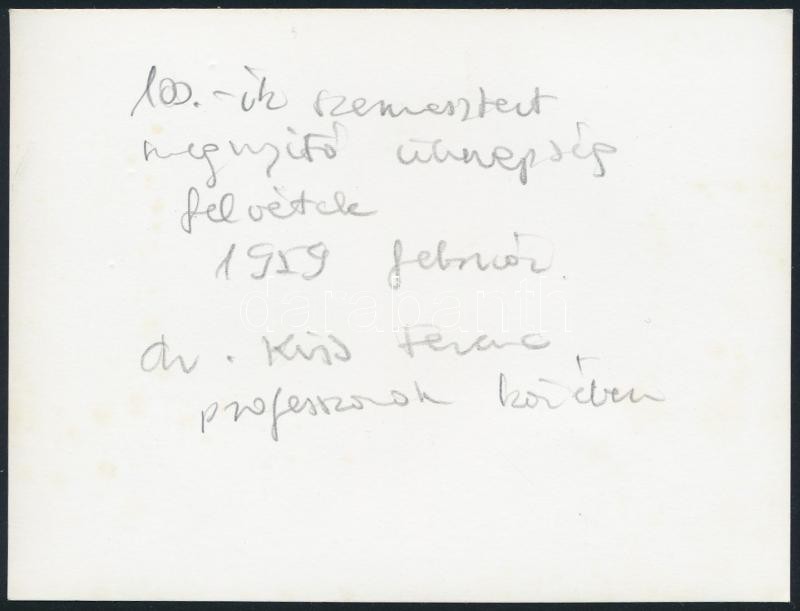 100.-ik szemesztert
megnyitó ünnepség
felvétele
1959 február.
darabanth
dr. Kiss Ferenc
professzorok körében